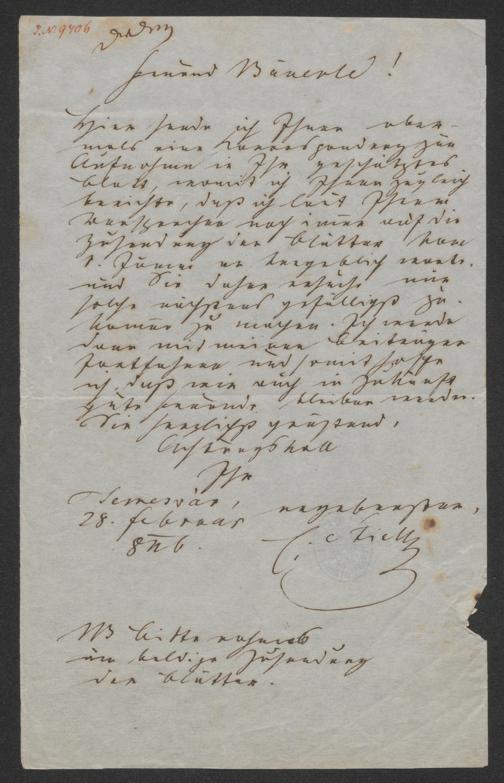 I.N. 9406
Freund Bäuerle!
Hier sende ich Ihnen aber-
mals eine Korrespondenz zur
Aufnahme in Ihr geschätztes
Blatt, womit ich Ihnen zugleich
berichte, daß ich laut Ihrem
Versprechen noch immer auf die
Zusendung der Blätter vom
1. Jänner an vergeblich warte.
und Sie daher ersuche mir
solche nächstens gefälligst zu-
kommen zu machen. Ich werde
dann mit meinen Beiträgen
fortfahren und somit hoffe
ich, daß wir auch in Zukunft
gute Freunde bleiben werden.
Sie herzlichst grüßend,
Achtungsvoll
Ihr
Temesvár, ergebenster,
28. Februar
NB bitte nochmals
um baldige Zusendung
der Blätter.